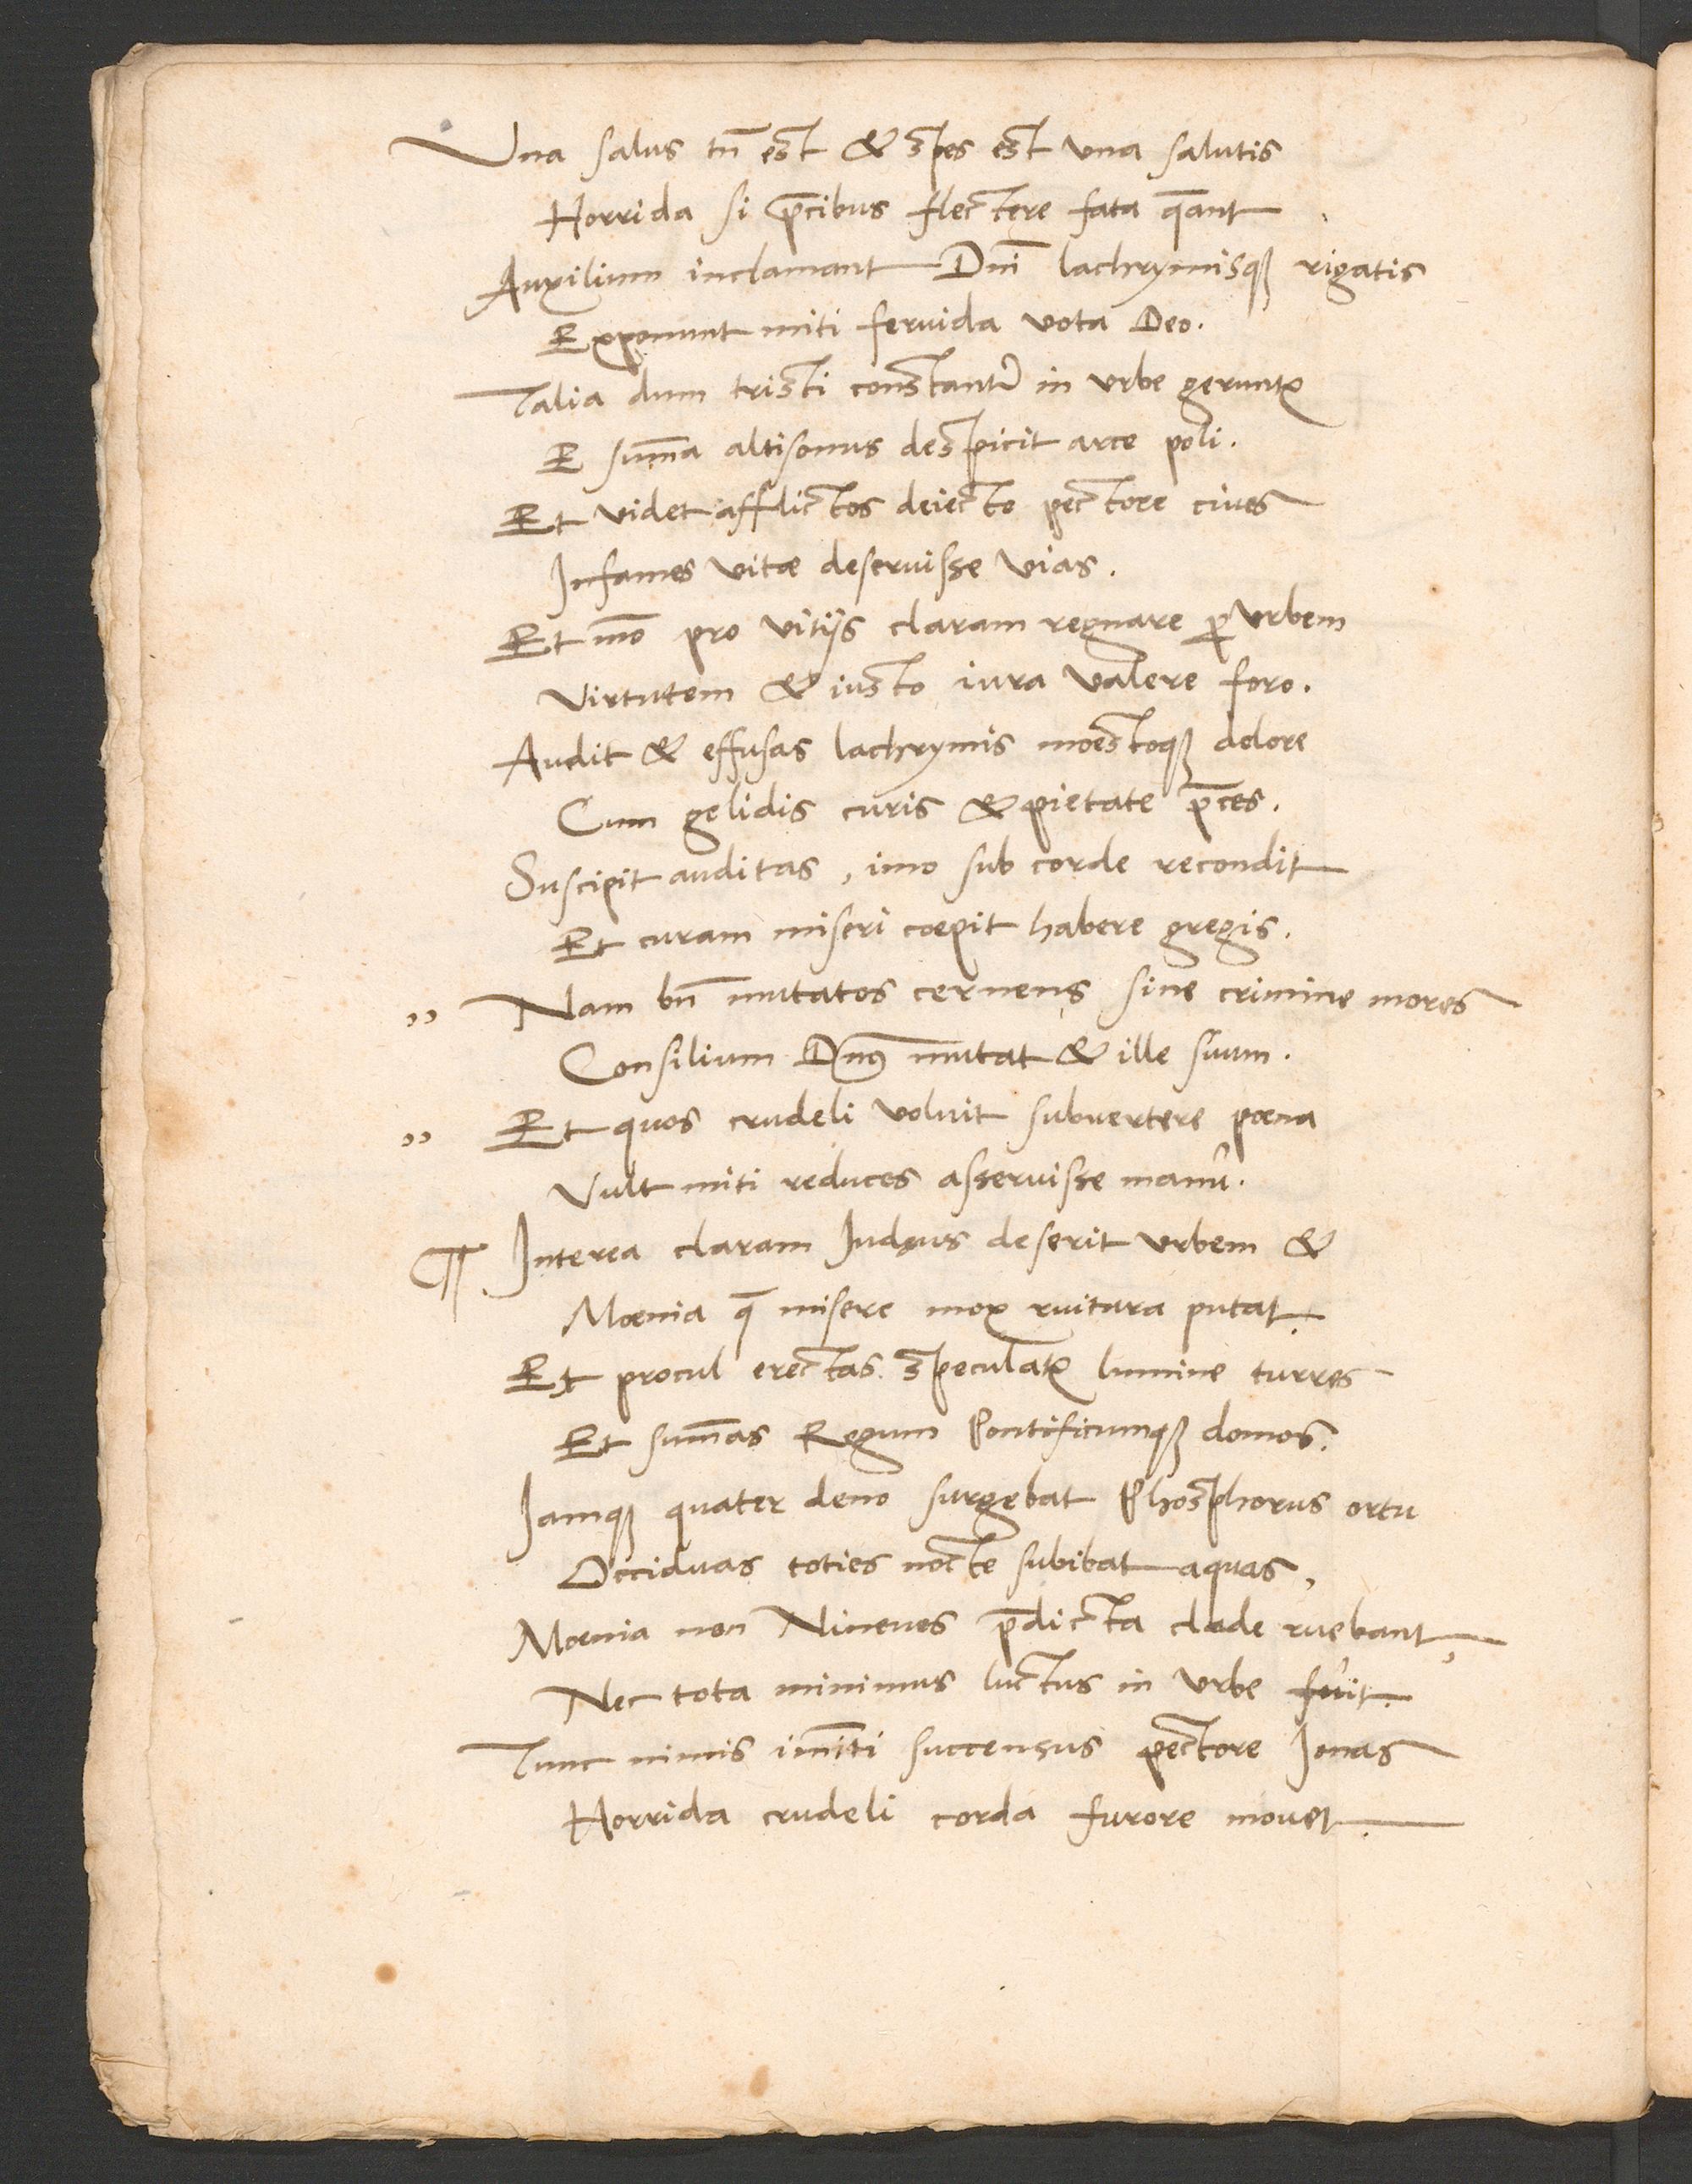 Vna salus tñ est & spes est vna salutis
Horrida si p̄cibus flectere fata q̄ant
Auxilium inclamant Dñi lachrymisqꝫ rigatis
Exponunt miti feruida vota Deo.
Talia dum tristi constantr̃ in vrbe geruntᷣ
E sum̄a altisonus despicit arce poli.
Et videt afflictos deiecto pectore ciues
Infames vitæ deseruisse vias.
Et mō pro vitijs claram regnare ꝑ vrbem
Virtutem & iusto iura valere foro.
Audit & effusas lachrymis moestoqꝫ dolore
Cum gelidis curis & pietate p̄ces.
Suscipit auditas, imo sub corde recondit
Et curam miseri coepit habere gregis.
,, Nam bñ mutatos cernens sine crimine mores
Consilium Dñs mutat & ille suum.
,, Et quos crudeli voluit subuertere poena
Vult miti reduces asseruisse manu.
¶ Interea claram Iudęus deserit vrbem &
Moenia q̄ misere mox ruitura putat.
Et procul erectas speculatᷣ lumine turres
Et sum̄as Regum Pontificumqꝫ domos.
Iamqꝫ quater deno surgebat Phosphorus ortu
Occiduas toties nocte subibat aquas,
Moenia non Nineues p̄dicta clade ruebant,
Nec tota minimus luctus in vrbe fuit.
Tunc nimis im̄iti succensus pectore Ionas
Horrida crudeli corda furore mouet.